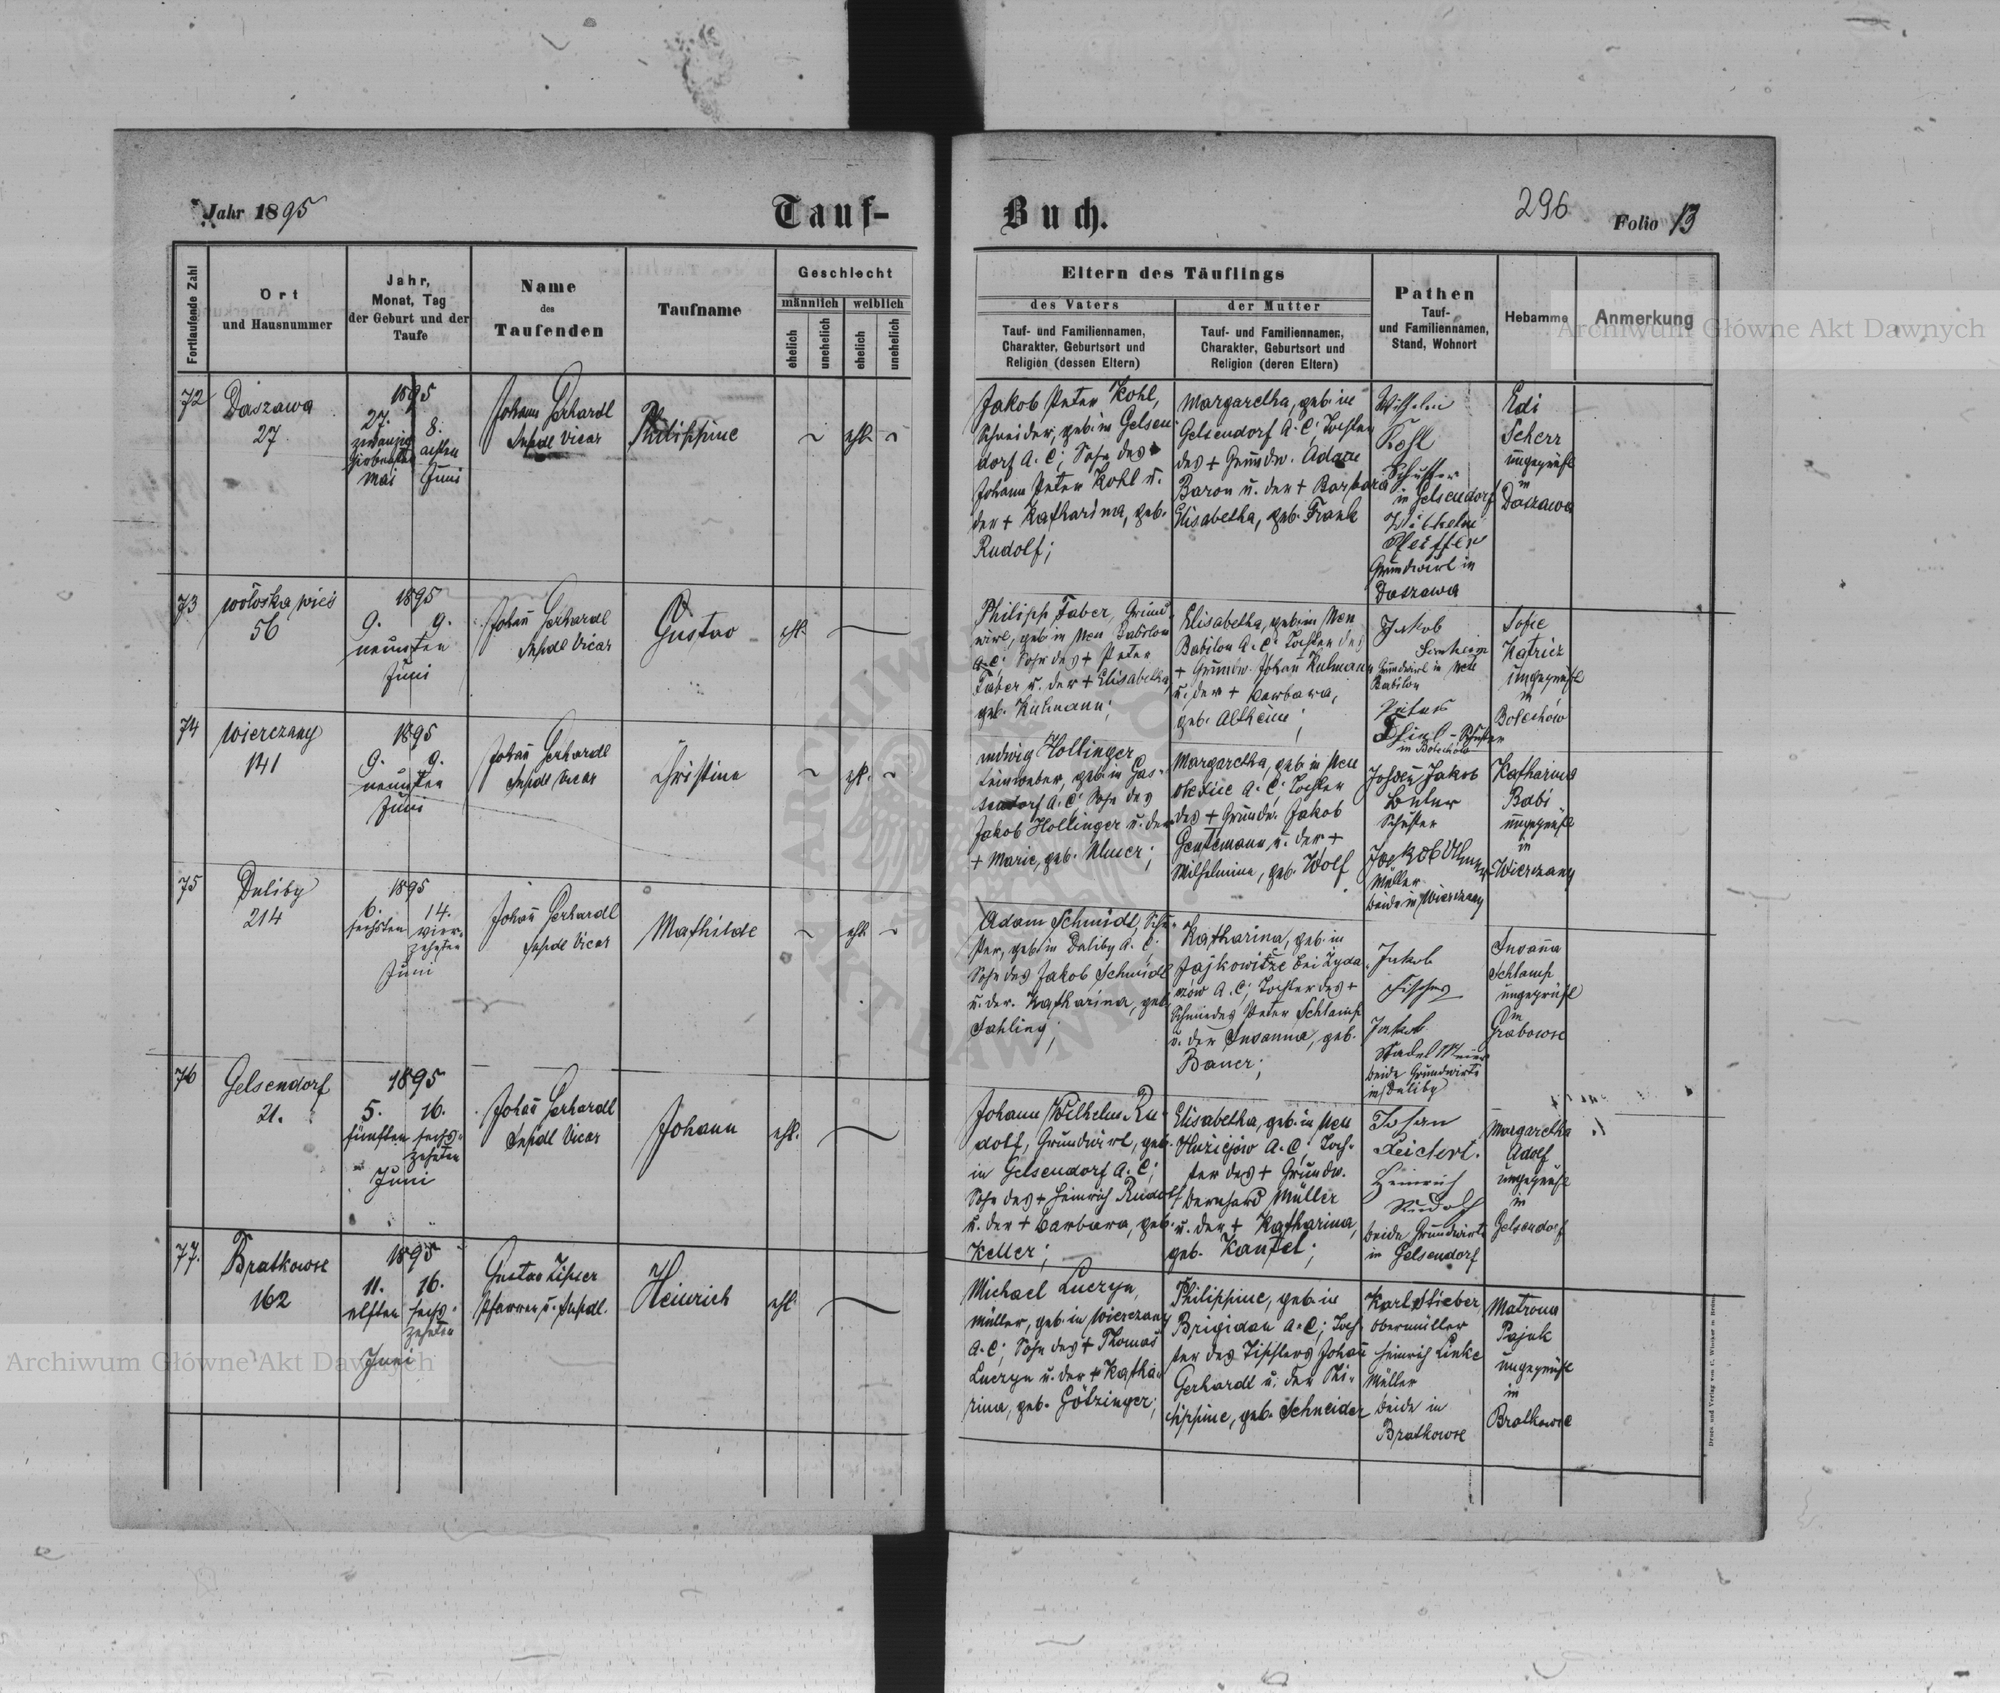 Jahr 1895
Tauf-
Buch.
296
Folio 13
Fortlaufende Zahl
Ort
und Hausnummer
Jahr,
Monat, Tag
der Geburt und der
Taufe
Name
des
Taufenden
Taufname
Geschlecht
männlich
weiblich
ehelich
unehelich
ehelich
unehelich
Eltern des Täuflings
des Vaters
Tauf- und Familiennamen,
Charakter, Geburtsort und
Religion (dessen Eltern)
der Mutter
Tauf- und Familiennamen,
Charakter, Geburtsort und
Religion (deren Eltern)
Pathen
Tauf-
und Familiennamen,
Stand, Wohnort
Hebamme
Anmerkung
72
Daszawa
27.
1895
27. 8.
zwanzig achten
siebenten
Mai Juni
Johann Gerhardt
Supdl Vicar
Philippine
ehl.
Jakob Peter Kohl,
Schneider, geb. in Gelsen
dorf A. C; Sohn des
Johann Peter Kohl u.
der + Katharina, geb.
Rudolf;
Margaretha, geb. in
Gelsendorf A. C; Tochter
des + Grundw. Adam
Baron u. der + Barbara
Elisabetha, geb. Frank
Wilhelm
Kohl
Schuster
in Gelsendorf
Wilhelm
Pfeiffer
Grundwirt in
Daszawa
Edi
Scherr
ungeprüft
in
Daszawa
73
Wołoska wieś
56
1895
9. 9.
neunten
Juni
Johañ Gerhardt
Supdl Vicar
Gustav
ehl.
Philipp Faber, Grund
wirt, geb. in Neu Babilon
A. C; Sohn des + Peter
Faber u. der + Elisabetha,
geb. Kulmann;
Elisabetha, geb. in Neu
Babilon A. C; Tochter des
+ Grundw. Johañ Kulmann
u. der + Barbara,
geb. Altheim;
Jakob
Grundwirt in Neu
Babilon
Peter
Schuster
in Bolechów
Sofie
Katricz
ungeprüft
in
Bolechów
74
Wierczany
141
1895
9. 9.
neunten
Juni
Johañ Gerhardt
Supdl Vicar
Christine
ehl.
Ludwig Hollinger
Leinweber, geb. in Gas-
sendorf A. C; Sohn des
Jakob Hollinger u. der
+ Marie, geb. Ulmer;
Margaretha, geb. in Neu
A. C; Tochter
des + Grundw. Jakob
Gentemann u. der +
Wilhelmine, geb. Wolf
Johañ Jakob
Schuster
Jakob Ulmer
Müller
beide in Wierczany
Katharina
Babi
ungeprüft
in
Wierczany
75
Duliby
214
1895
6. 14.
sechsten vier-
zehnten
Juni
Johañ Gerhardt
Supdl Vicar
Mathilde
ehl.
Adam Schmidt, Schu-
ster, geb. in Duliby A. C;
Sohn des Jakob Schmidt
u. der Katharina, geb.
Sahling;
Katharina, geb. in
Jajkowitze bei Zyda-
zów A. C; Tochter des +
Schmiedes Peter Schlamp
u. der Susanna, geb.
Bauer;
Jakob
Fischer
Jakob
Stadelmeier
beide Grundwirte
in Duliby
Susanna
Schlamp
ungeprüft
in
Grabowce
76
Gelsendorf
21.
1895
5. 16.
fünften sechs-
zehnten
Juni
Johañ Gerhardt
Supdl Vicar
Johann
ehl.
Johann Wilhelm Ru-
dolf, Grundwirt, geb.
in Gelsendorf A. C;
Sohn des + Heinrich Rudolf
u. der + Barbara, geb.
Keller;
Elisabetha, geb. in Neu
Huziejów A. C; Toch-
ter des + Grundw.
Bernhard Müller
u. der + Katharina,
geb. Kaufel;
Johan
Reichert.
Heinrich
Rudolf
beide Grundwirte
in Gelsendorf
Margaretha
Adolf
ungeprüft
in
Gelsendorf
77.
Bratkowce
162
1895
11. 16.
elften sechs-
zehnten
Juni
Gustav Zipser
Pfarrer u. Supdl.
Heinrich
ehl.
Michael Luczyn,
Müller, geb. in Wierczany
A. C; Sohn des + Thomas
Luczyn u. der + Katha-
rina, geb. Götzinger;
Philippine, geb. in
Brigidau A. C; Toch-
ter des Tischlers Johañ
Gerhardt u. der Phi-
lippine, geb. Schneider
Karl Stieber,
Obermüller
Heinrich Linke
Müller
beide in
Bratkowce
Matrona
Pajuk
ungeprüft
in
Bratkowce
Archiwum Główne Akt Dawnych
Archiwum Główne Akt Dawnych